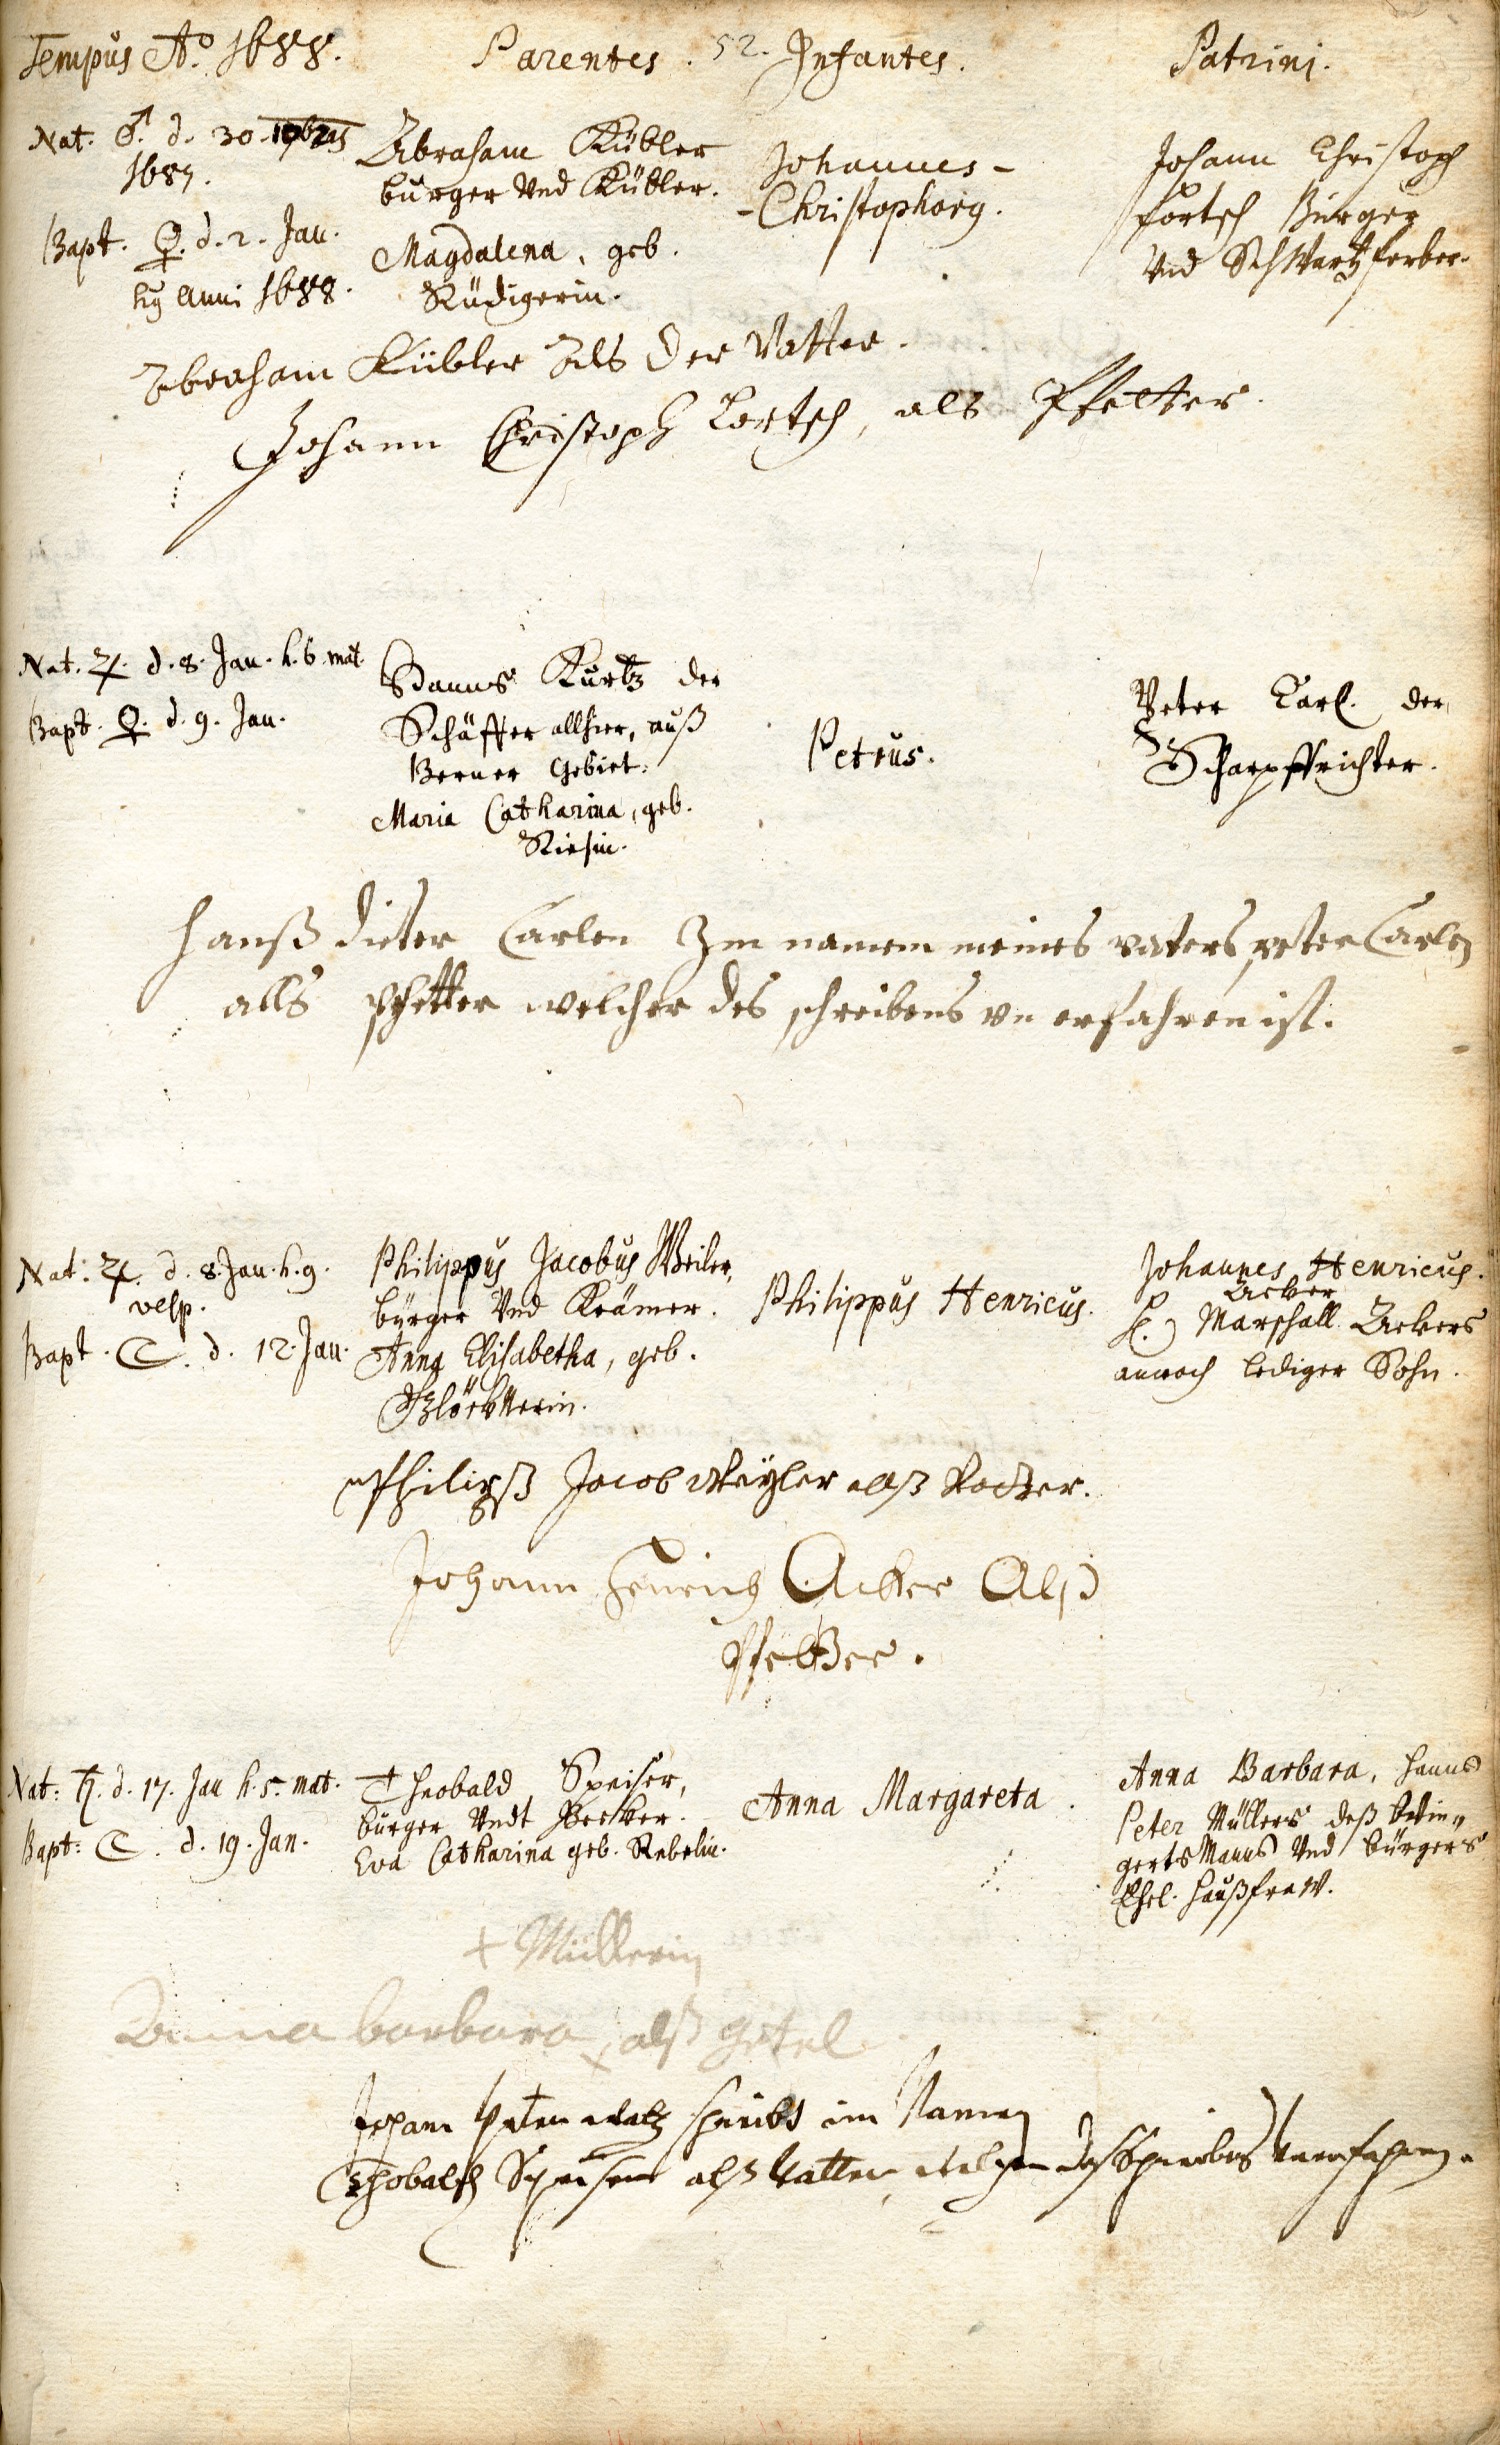 Tempus Ao. 1688. Parentes. 52. Infantes. Patrini.
Nat. ♂. d. 30. 10bris
1687.
Bapt. ♀. d. 2. Jan.
huj Anni 1688.
Abraham Kübler
burger Vnd Kübler.
Magdalena, geb.
Rüdigerin.
Johannes-
-Christophorus.
Johann Christoph
Burger
Vnd Schwartzferber.
Abraham Kübler Als der Vatter.
Johann Christoph Lortsch, als Pfetter.
Nat. ♃. d. 8. Jan. h. 6. mat.
Bapt. ♀. d. 9. Jan.
Hanns Kurtz der
Schäffer allhier, auß
Berner Gebiet.
Maria Catharina, geb.
Riesin.
Petrus.
Peter Carl. der
Scharpffrichter.
Hanß Dieter Carlen Im namen meines vaters peter Carlen
alls pfetter welcher des schreibens vn erfahren ist.
Nat. ♃. d. 8. Jan. h. 9.
vesp.
Bapt. ☾. d. 12. Jan.
Philippus Jacobus Weiler,
bürger Vnd Krämer.
Anna Elisabetha, geb.
Philippus Henricus.
Johannes Henricus
Acker
H. Marschall Ackers
annoch lediger Sohn.
Philipß Jacob Weyler alß Vatter.
Johann Henrich Acker Alß
Pfetter.
Nat: ♄. d. 17. Jan h. 5. mat.
Bapt: ☾. d. 19. Jan.
Theobald Speiser,
bürger Vndt Becker.
Eva Catharina geb. Rebelin.
Anna Margareta.
Anna Barbara, Hanns
Peter Müllers deß Win„
gertsManns Vnd bürgers
Ehel. Haußfraw.
+ Müllerin
Anna barbara + alß gettel
Johann Peter schreibt im Namen
Thobalt Speiser alß Vatter welcher des schreibens unerfahren.